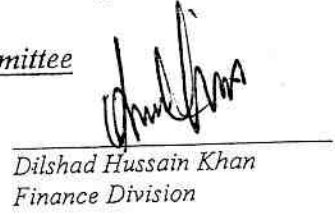 mittee
Dilshad Hussain Khan
Finance Division